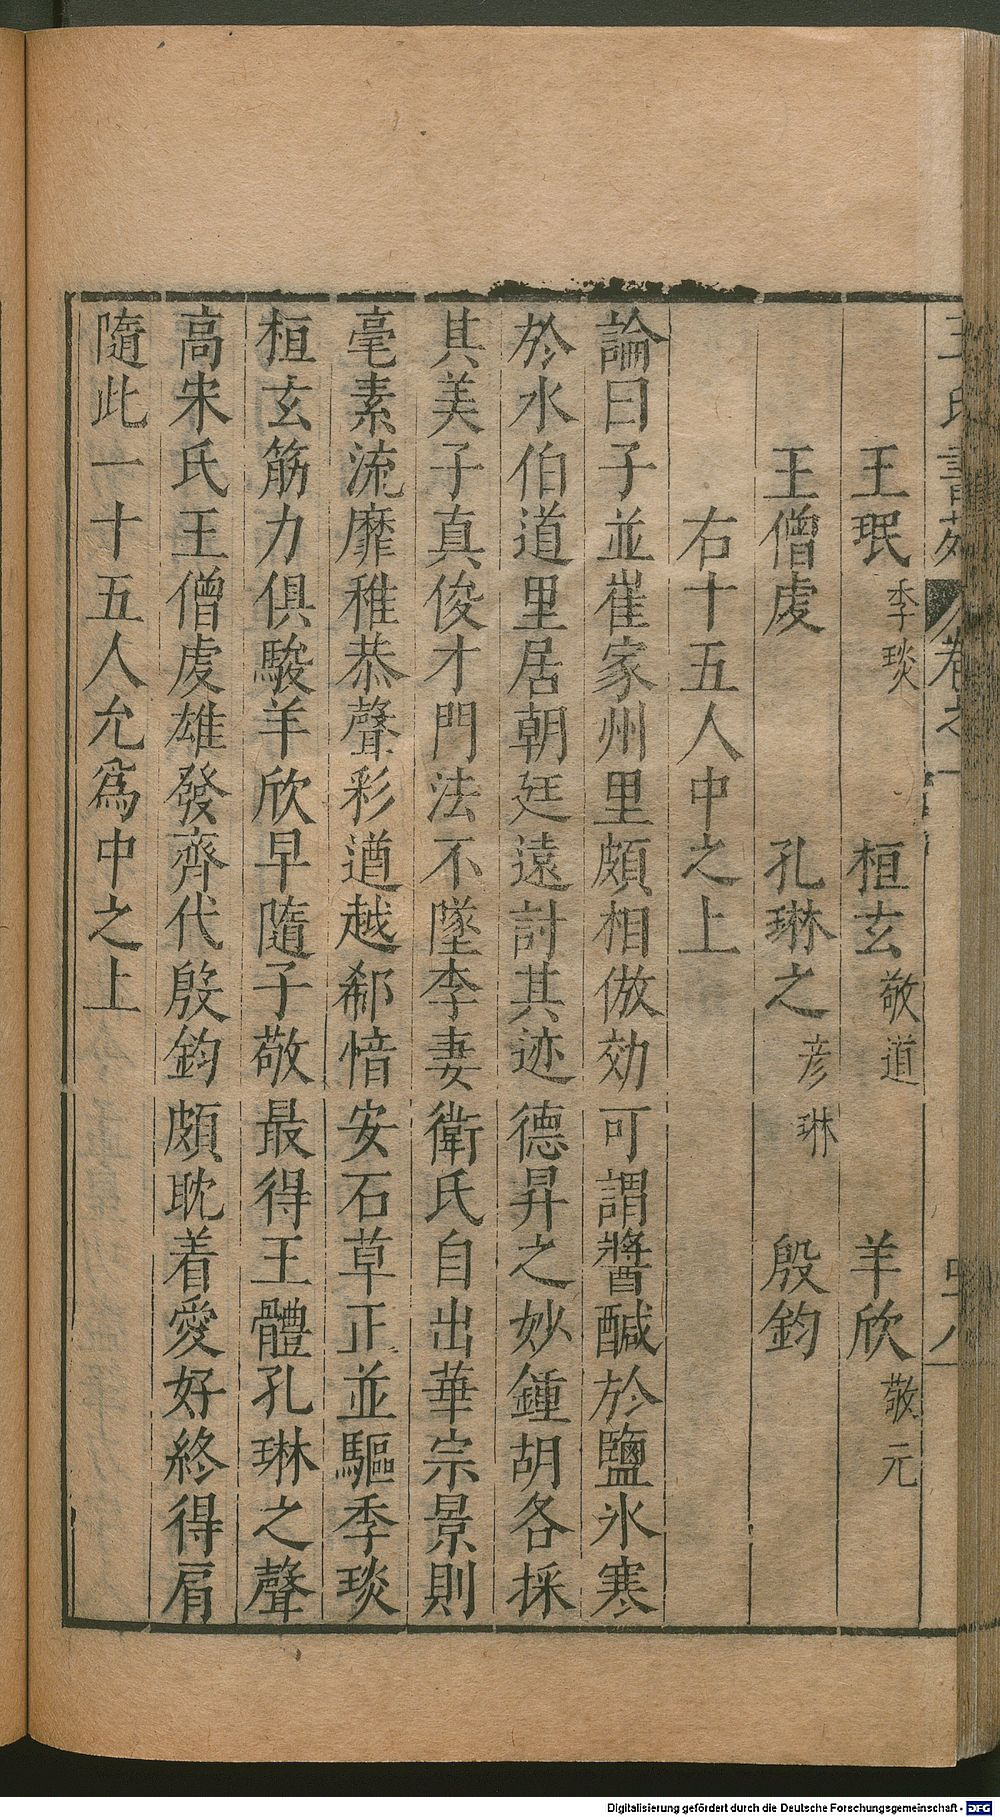 王氏書苑 卷之一
王珉 季琰 桓玄 敬道 羊欣 敬元
王僧虔 孔琳之 彦琳 殷鈞
右十五人中之上
論曰子並崔家州里頗相倣効可謂醬鹹於鹽氷寒
於水伯道里居朝廷遠討其迹德昇之妙鍾胡各採
其美子真俊才門法不墜李妻衛氏自出華宗景則
毫素流靡稚恭聲彩遒越郗愔安石草正並驅季琰
桓玄筋力俱駿羊欣早隨子敬最得王體孔琳之聲
高宋氏王僧虔雄發齊代殷鈞頗耽着愛好終得肩
隨此一十五人允為中之上
Digitalisierung gefördert durch die Deutsche Forschungsgemeinschaft - DFG